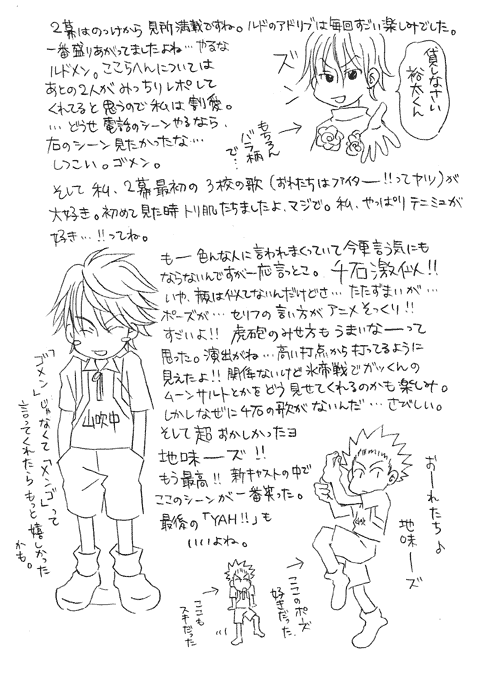 2幕はのっけから見所満載ですね。ルドのアドリブは毎回すごい楽しみでした。
一番盛りあがってましたよね…やるな
ルドメン。ここらへんについては
あとの2人がみっちりレポして
くれてると思うので私は割愛。
…どうせ電話のシーンやるなら、
右のシーン見たかったな…
しつこい。ゴメン。
ズ
ン
貸しなさい
裕太くん
もちろん
バラ柄
で…
そして私、2幕最初の3校の歌(おれたちはファイターー!!ってヤツ)が
大好き。初めて見た時トリ肌たちましたよ、マジで。私、やっぱりテニミュが
好き…!!ってね。
も一色んな人に言われまくっていて今更言う気にも
ならないんですが一応言っとこ。千石激似!!
いや、顔は似てないんだけどさ…たたずまいが…
ポーズが…セリフの言い方がアニメそっくり!!
すごいよ!!虎砲のみせ方もうまいなーって
思った。演出がね…高い打点から打ってるように
見えたよ!!関係ないけど氷帝戦でガックんの
ムーンサルトとかをどう見せてくれるのかも楽しみ。
しかしなぜに千石の歌がないんだ…さびしい。
そして超おかしかったヨ
地味ーズ!!
もう最高!!新キャストの中で
ここのシーンが一番笑った。
最後の「YAH!!」も
いいよね。
山吹中
「ゴメン」じゃなくて「メンゴ」って
言ってくれたらもっと嬉しかった
かも。
おーれたち♪
地味ーズ
ここのポーズ
好きだった
ここも
スキだった